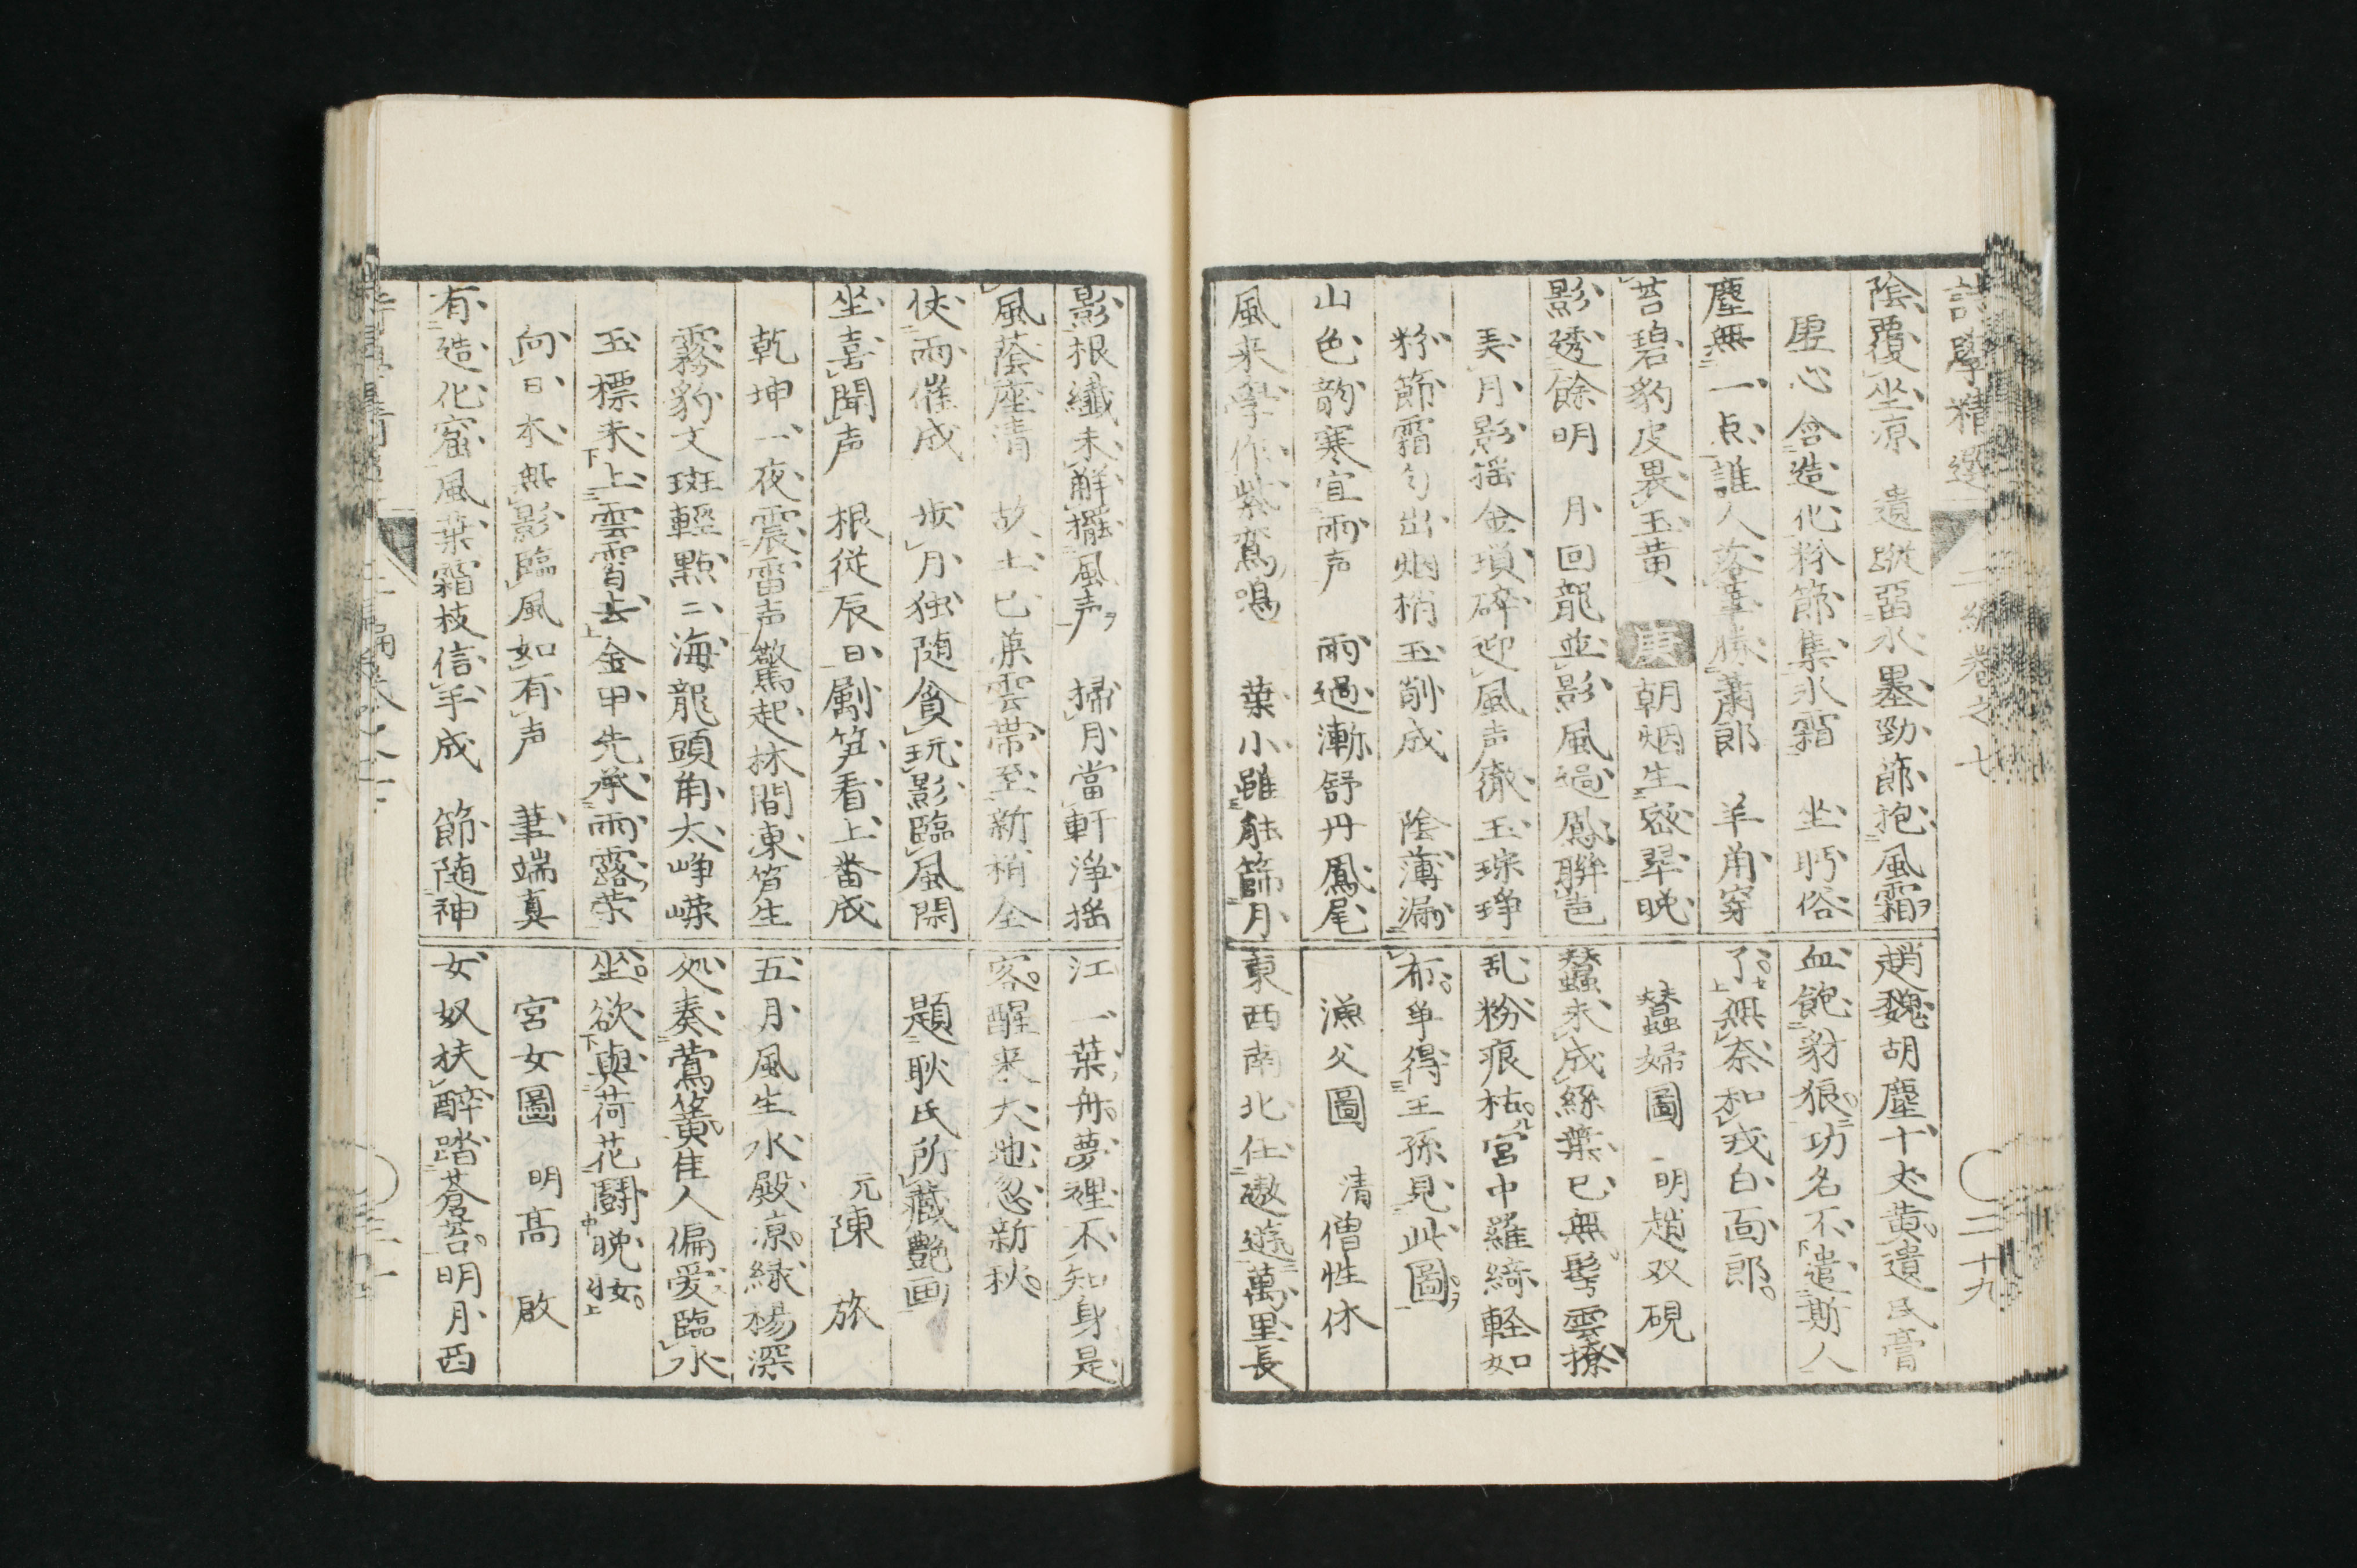 詩學精選 二編卷之七 二十九
陰覆坐凉 遺蹤畱水墨勁節抱風霜
虚心含造化粉節集氷霜 坐眄俗
塵無一点誰人落筆勝蕭郎 羊角穿
苔碧豹皮畏玉黄 庚 朝烟生密翠晩
影透餘明 月回龍並影風過鳳聯
美月影揺金瑣碎迎風声徹玉琮琤
粉節霜匀出烟梢玉削成 陰薄漏
山色韵寒宜雨声 雨過漸舒丹鳳尾
風来學作紫鸞鳴 葉小雖能篩月
趙魏胡塵十丈黄遺民膏
血飽豺狼功名不遣斯人
了無奈和戎白面郎
蠶婦圖 明趙双硯
蠶來成絲葉已無髩雲撩
乱粉痕枯宮中羅綺軽如
布争得王孫見此圖
漁父圖 清僧性休
東西南北任遨遊萬里長
影根纖未解擺風声 掃月當軒淨揺
風蔭座清 故土已兼雲帶至新梢全
俠雨催成 歩月独随貪玩影臨風閑
坐喜聞声 根従辰日劚笋看上番成
乾坤一夜震雷声驚起林間凍笋生
霧豹文斑輕點二海龍頭角太峥嶸
玉標来上雲霄去金甲先承雨露荣
向日本無影臨風如有声 筆端真
有造化窟風葉霜枝信手成 節随神
江一葉舟夢裡不知身是
客醒来大地忽新秋
題耿氏所藏艶画
元陳 旅
五月風生水殿凉緑楊深
処奏鶯簧佳人偏愛臨水
坐欲與荷花闘晩女
宮女圖 明高 啟
女奴扶醉踏蒼苔明月西